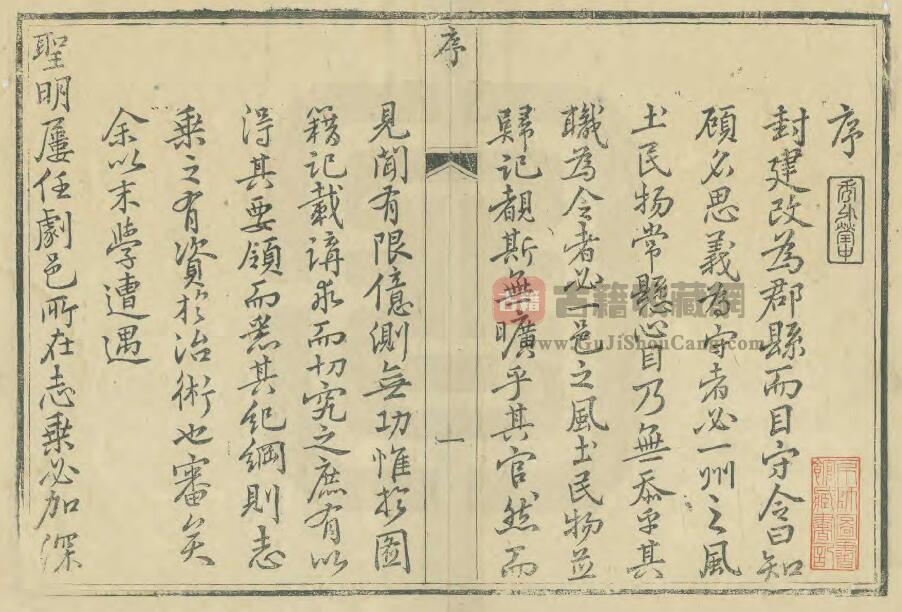 序
封建改為郡縣而目守令曰知
顧名思義為守者必一州之風
土民物常懸心目乃無忝乎其
職為令者必一邑之風土民物並
歸記覩斯無曠乎其官然而
序
一
見聞有限億測無功惟於圖
籍記載講求而切究之庶有以
得其要領而悉其紀綱則志
乘之有資於治術也審矣
余以末學遭遇
聖明屢任劇邑所在志乘必加深
古籍
古籍收藏網
www.GuJiShouCang.com